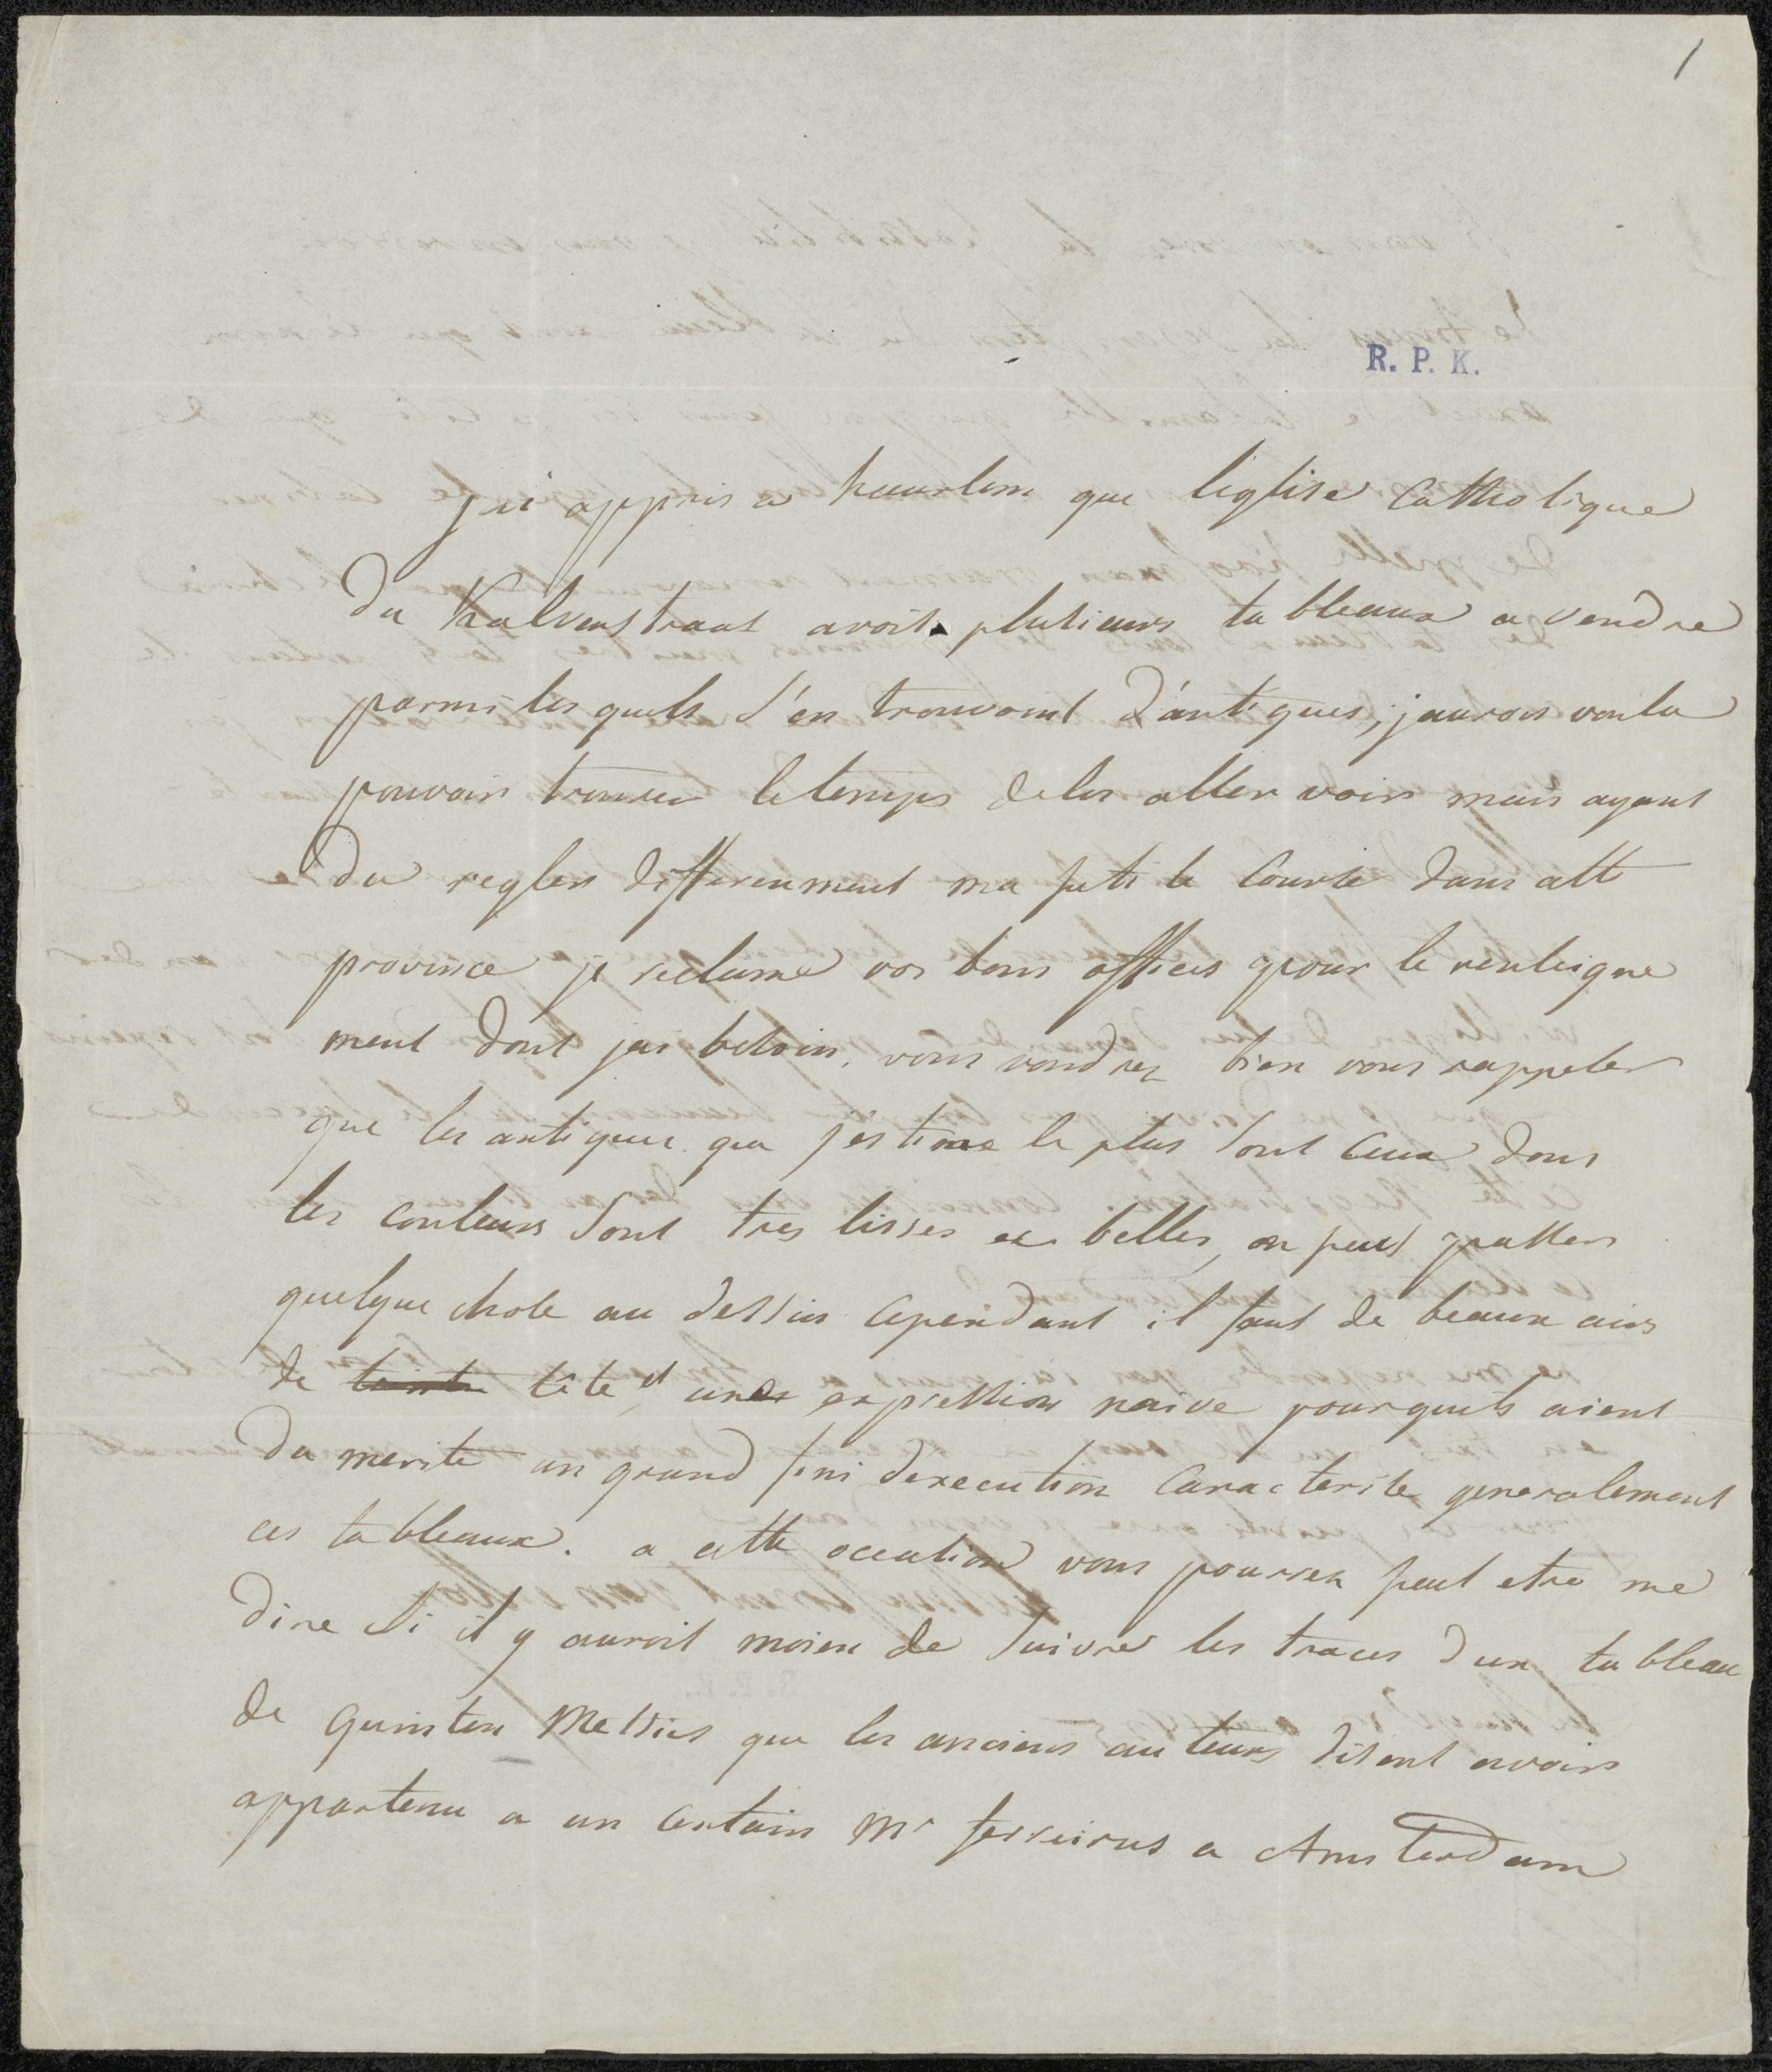 1
R. P. K.
j'ai appris a haarlem que l'eglise Catholique
du Kalverstraat avoit plusieurs tableaux a vendre
parmi lesquels s'en trouvoint d'antiques, j'aurois voulu
pouvoir trouver le temps de les aller voir mais ayant
du regler differenment ma petite Course dans cette
province je reclame vos bons offices pour le renseigne
ment dont j'ai besoin. vous voudrez bien vous rappeler
que les antiques que j'estime le plus sont Ceux dont
les couleurs sont tres lisses et belles, on peut passer
quelque chose au dessin cependant il faut de beaux airs
de tête, et une expression naive pourquils aient
du merite un grand fini d'execution Caracterise generalement
ces tableaux. a cette occasion vous pourrez peut etre me
dire si il y auroit moien de suivre les traces d'un tableau
de Quinten Messies que les anciens auteurs disent avoir
appartenu a un Certain Mr ferreirus a Amsterdam